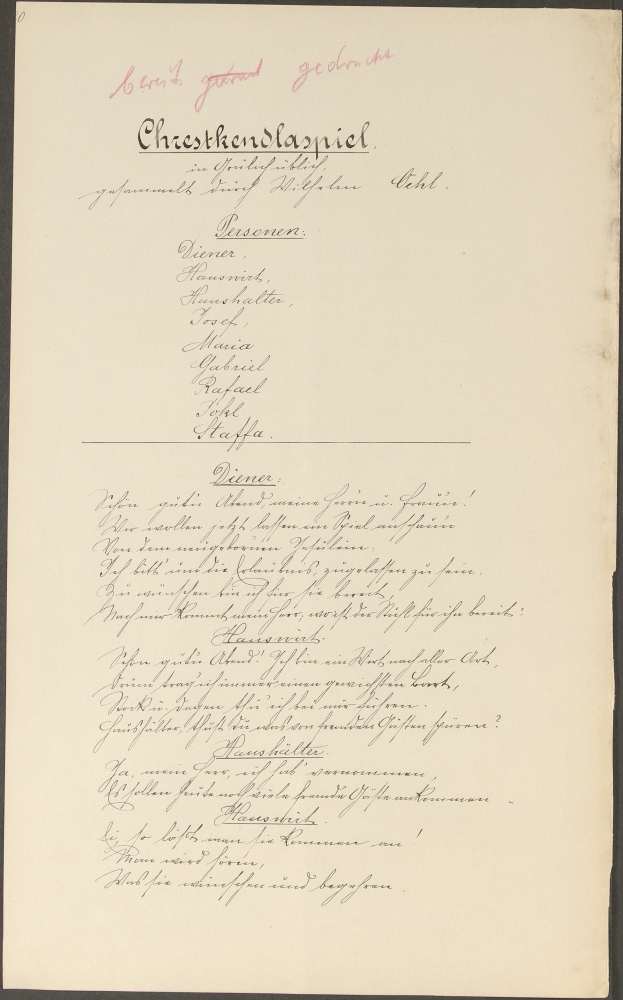 bereits gedruckt
Chrestkendlaspiel.
in Grulich üblich,
gesammelt durch Wilhelm Oehl.
Personen:
Diener,
Hauswirt,
Haushalter,
Josef,
Maria
Gabriel
Rafael
Jokl
Staffa.
Diener:
Schön gut'n Abend, meine Herrn u. Frauen!
Wir wollen jetzt lassen ein Spiel anschaun
Von dem neugebornen Jesulein.
Ich bitt' um die Erlaubnis, zugelassen zu sein.
Zu wünschen bin ich hier sie bereit,
Nach mir kommt mein Herr, wo ist der Stuhl für ihn bereit?
Hauswirt.
Schön gut'n Abend! Ich bin ein Wirt nach aller Art,
Drum trag' ich immer einen gewichsten Bart,
Stock u. Degen thu' ich bei mir führen.
Haushalter, thust du was von fremden Gästen spüren?
Haushälter.
Ja, mein Herr, ich hab' vernommen,
Es sollen heute noch viele fremde Gäste ankommen
Hauswirt.
Ei, so läßt man sie kommen an!
Man wird hören,
Was sie wünschen und begehren.